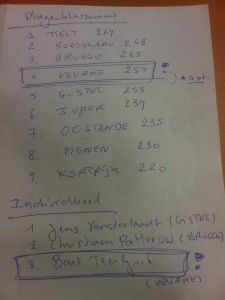 Ploegenklassement
1. TIELT 269
2. ROESELARE 268
3. BRUGGE 265
4. VEURNE 255 !
5. GISTEL 253
6. IEPER 239
7 OOSTENDE 235
8. MENEN 230
9. KORTRIJK 220
Individueel
1. Jens Vansterlandt (GISTEL)
2. Christiaen Patteeuw (BRUGGE)
3. Bart !
(VEURNE)